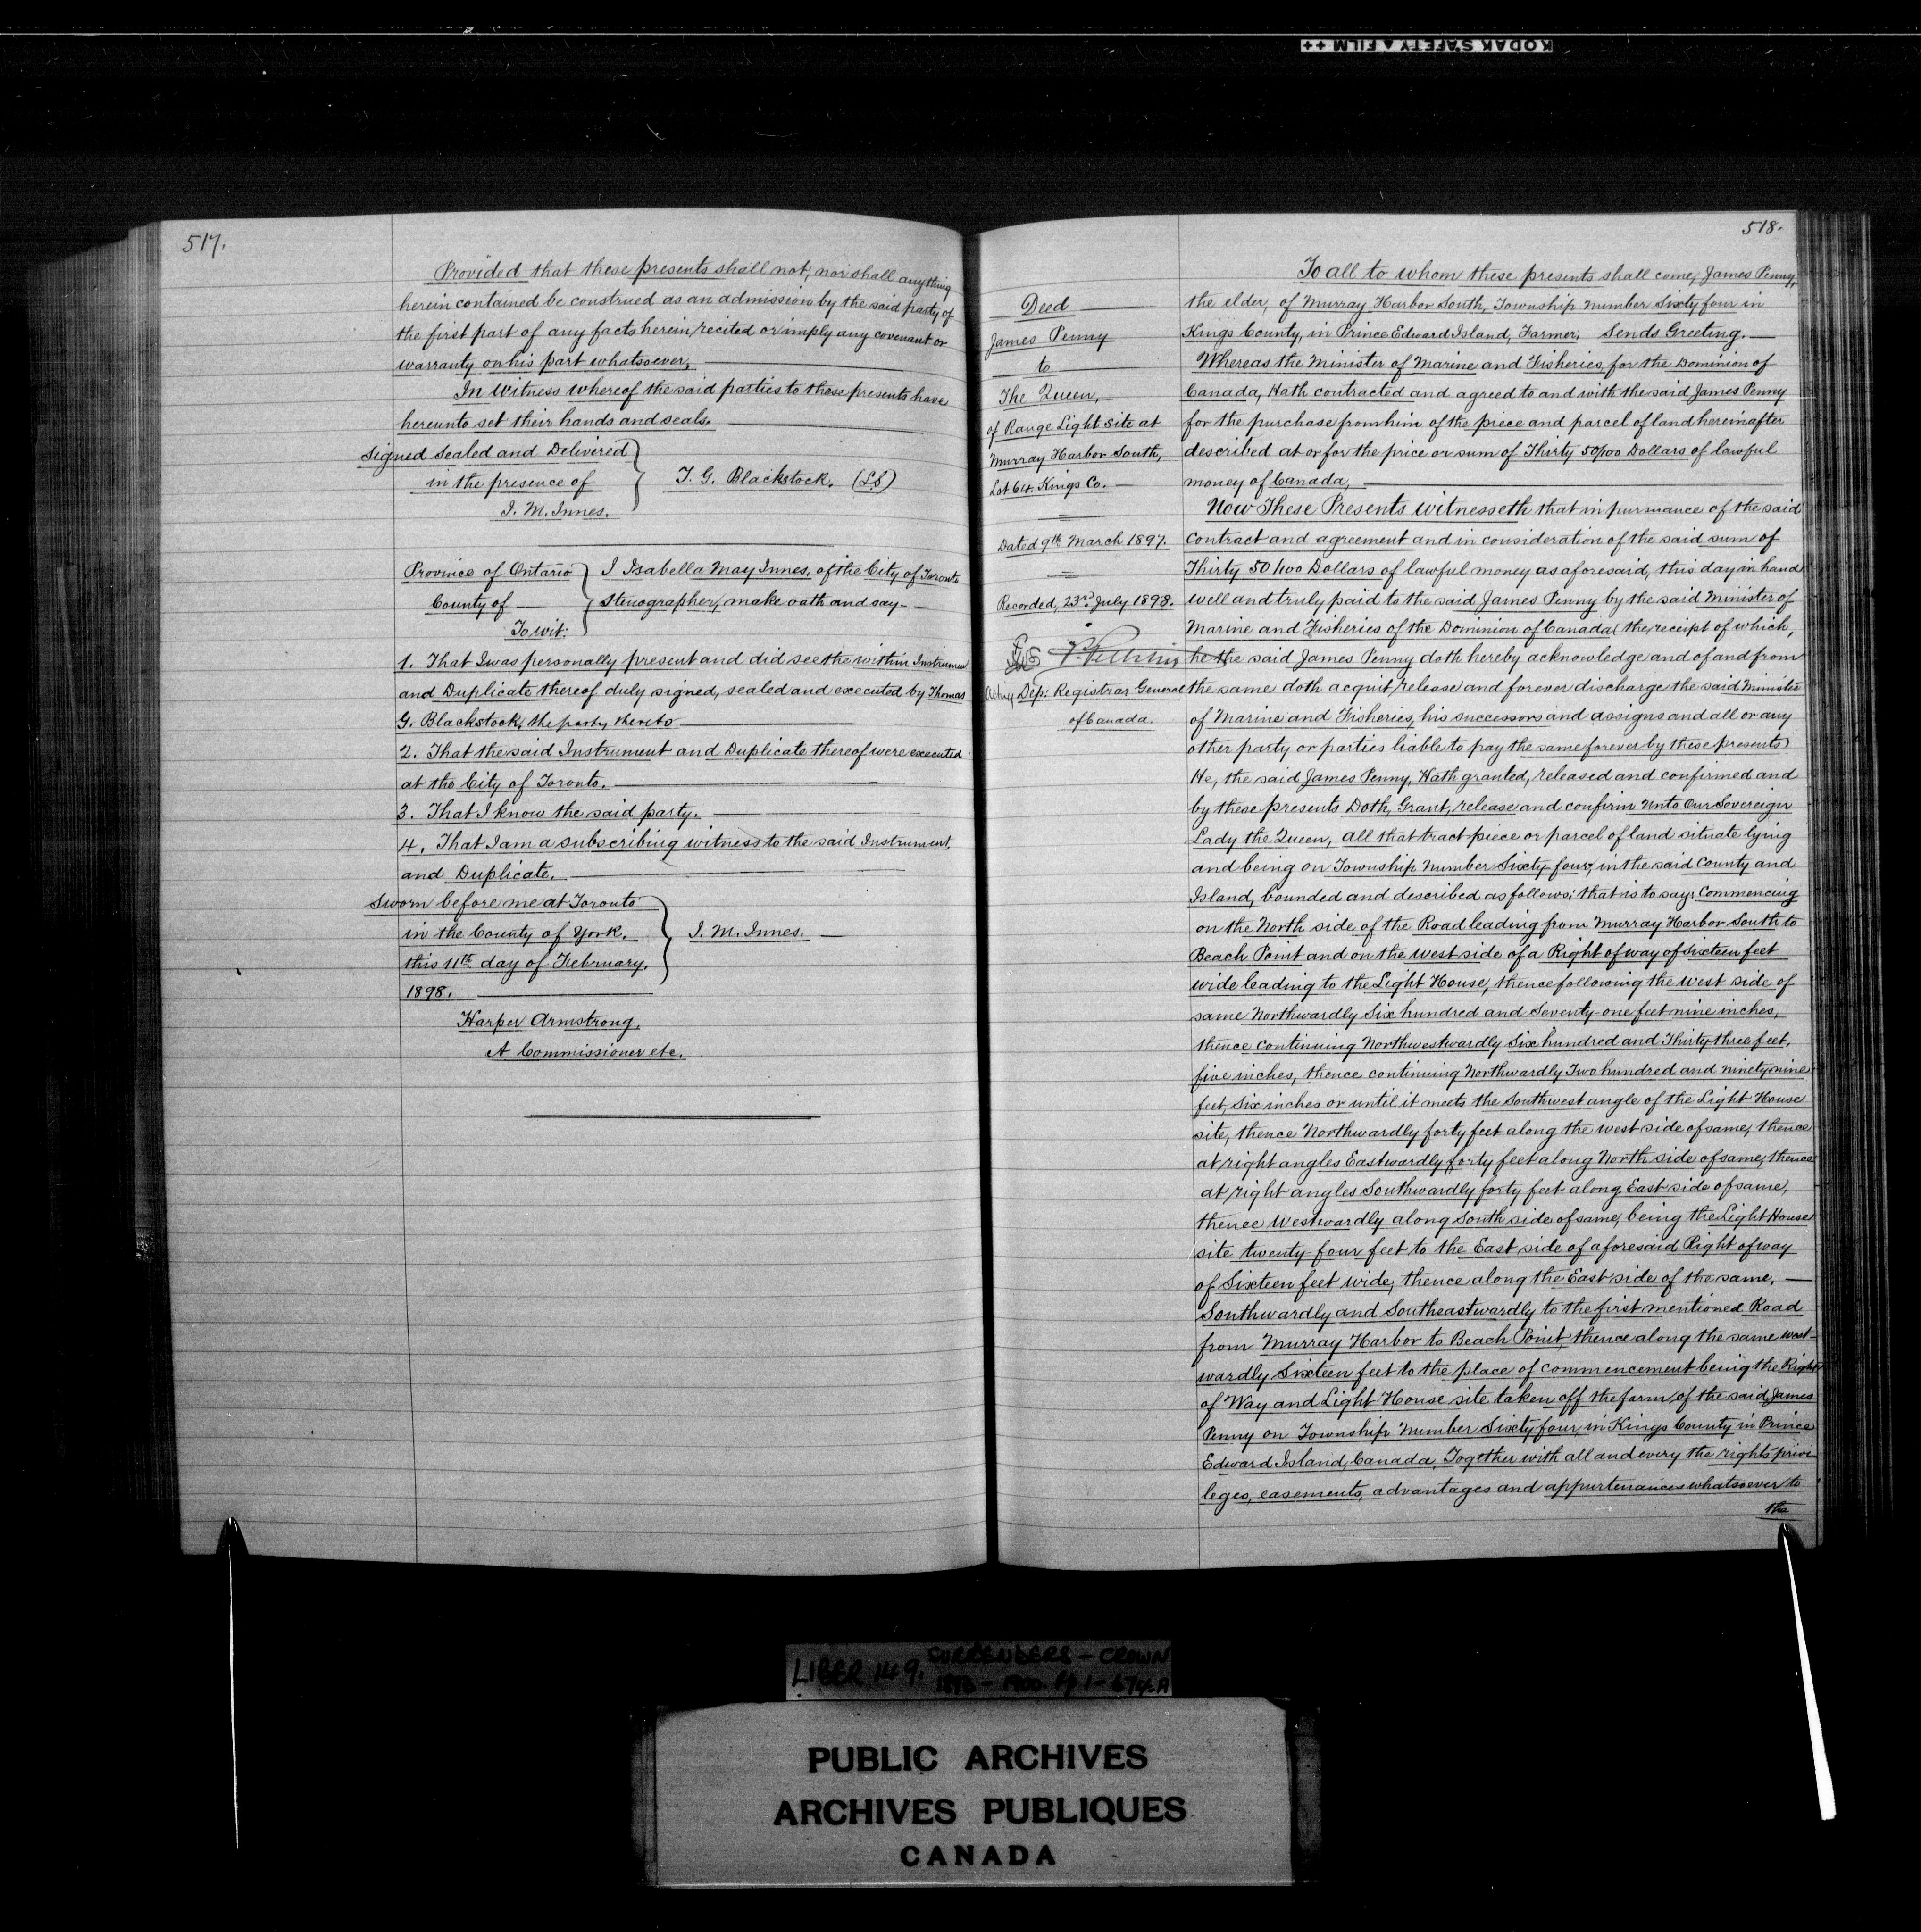 KODAK SAFETY FILM ++
517.
Provided that these presents shall not, nor shall anything
herein contained be construed as an admission by the said party of
the first part of any facts herein recited or imply any covenant or
warranty on his part whatsoever.
In Witness whereof the said parties to these presents have
hereunto set their hands and seals.
Signed Sealed and Delivered
in the presence of
I. M. Innes.
T. G. Blackstock. (LS)
Province of Ontario
County of
To wit:
I Isabella May Innes, of the City of Toronto
Stenographer, make oath and say
1. That I was personally present and did see the within Instrument
and Duplicate thereof duly signed, sealed and executed by Thomas
G. Blackstock, the party thereto
2. That the said Instrument and Duplicate thereof were executed
at the City of Toronto.
3. That I know the said party.
4. That I am a subscribing witness to the said Instrument,
and Duplicate.
Sworn before me at Toronto
in the County of York,
this 11th day of February,
1898.
I. M. Innes.
Harper Armstrong,
A Commissioner etc.
518.
Deed
James Penny
to
The Queen,
of Range Light Site at
Murray Harbor South,
Lot 64. Kings Co.
Dated 9th March 1897.
Recorded, 23rd July 1898.
Acting Dep: Registrar General
of Canada.
To all to whom these presents shall come, James Penny,
the elder, of Murray Harbor South, Township number Sixty four in
Kings County, in Prince Edward Island, Farmer, Sends Greeting.
Whereas the Minister of Marine and Fisheries, for the Dominion of
Canada, Hath contracted and agreed to and with the said James Penny
for the purchase from him of the piece and parcel of land hereinafter
described at or for the price or sum of Thirty 50/100 Dollars of lawful
money of Canada,
Now These Presents witnesseth that in pursuance of the said
contract and agreement and in consideration of the said sum of
Thirty 50/100 Dollars of lawful money as aforesaid, this day in hand
well and truly paid to the said James Penny by the said Minister of
Marine and Fisheries of the Dominion of Canada (the receipt of which,
he the said James Penny doth hereby acknowledge and of and from
the same doth acquit, release and forever discharge the said Minister
of Marine and Fisheries, his successors and assigns and all or any
other party or parties liable to pay the same forever by these presents)
He, the said James Penny, Hath granted, released and confirmed and
by these presents Doth, Grant, release and confirm unto Our Sovereign
Lady the Queen, all that tract piece or parcel of land situate lying
and being on Township Number Sixty-four, in the said County and
Island, bounded and described as follows; that is to say: Commencing
on the North side of the Road leading from Murray Harbor South to
Beach Point and on the west side of a Right of way of Sixteen feet
wide leading to the Light House, thence following the west side of
same Northwardly Six hundred and Seventy-one feet nine inches,
thence continuing Northwestwardly Six hundred and Thirty three feet,
five inches, thence continuing Northwardly Two hundred and ninety nine
feet, six inches or until it meets the Southwest angle of the Light House
site, thence Northwardly forty feet along the west side of same, thence
at right angles Eastwardly forty feet along North side of same, thence
at right angles Southwardly forty feet along East side of same,
thence westwardly along South side of same, being the Light House
site twenty-four feet to the East side of aforesaid Right of way
of Sixteen feet wide, thence along the East side of the same.
Southwardly and Southeastwardly to the first mentioned Road
from Murray Harbor to Beach Point, thence along the same west-
wardly Sixteen feet to the place of commencement being the Right
of Way and Light House site taken off the farm of the said James
Penny on Township Number Sixty four, in Kings County in Prince
Edward Island, Canada, Together with all and every the rights privi-
leges, easements, advantages and appurtenances whatsoever to
the
LIBER 149. SURRENDERS - CROWN
1893 - 1900. Pp 1 - 674-A
PUBLIC ARCHIVES
ARCHIVES PUBLIQUES
CANADA